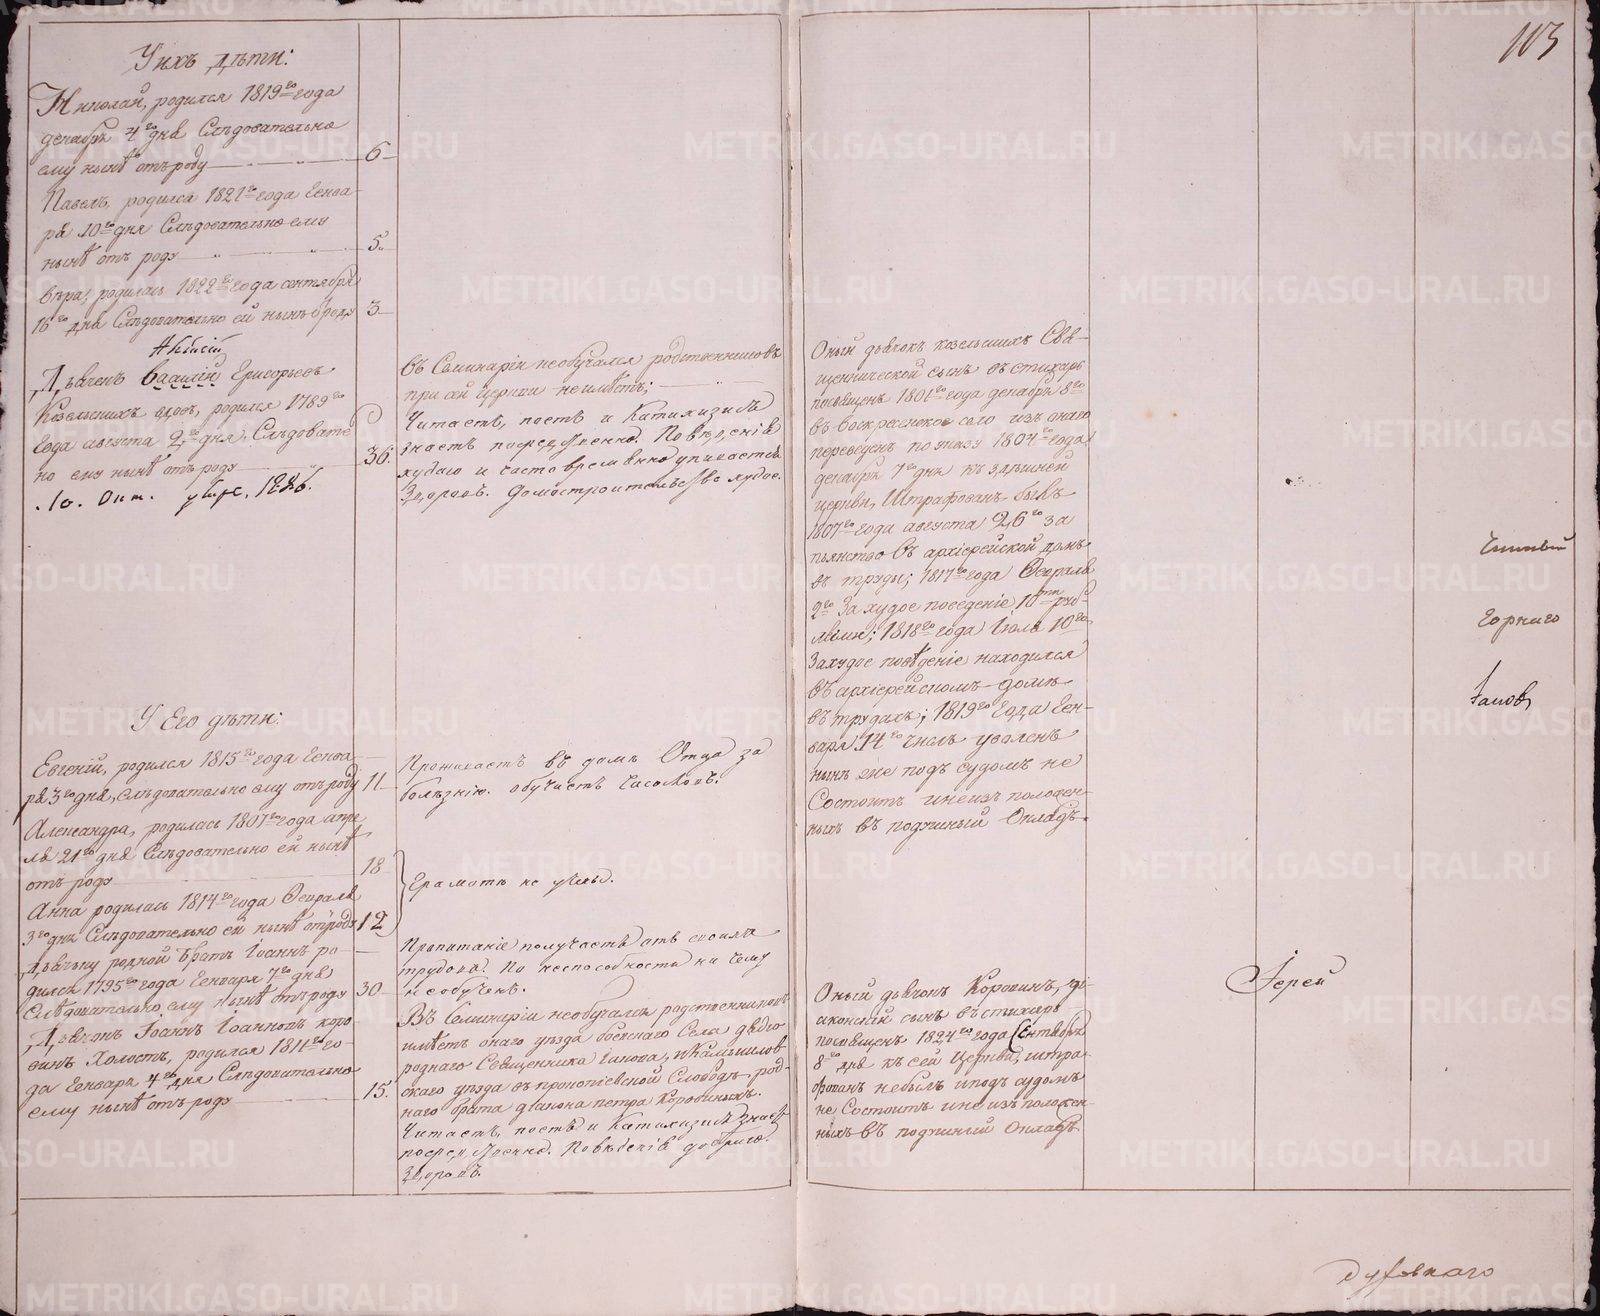 113
У нихъ дѣти:
Николай, родился 1819го года
декабря 4го дня Слѣдовательно
ему нынѣ отъ роду 6
Павелъ, родился 1821го года Генва-
ря 10го дня Слѣдовательно ему
нынѣ отъ роду 5
Вѣра, родилась 1822го года сентября
16го дня Слѣдовательно ей нынѣ отроду 3
Дьячекъ Василій Григорьевъ
Козельскихъ вдовъ, родился 1789го
года августа 2го дня, Слѣдователь
но ему нынѣ отъ роду 36.
10. Окт. 1826.
У Его дѣти:
Евгеній, родился 1815го года Генва-
ря 3го дня, слѣдовательно ему отъ роду 11
Александра, родилась 1807го года апре
ля 21го дня Слѣдовательно ей нынѣ
отъ роду 18
Анна родилась 1814го года Февраля
3го дня Слѣдовательно ей нынѣ отроду 12
Дьячку родной братъ Іоаннъ ро-
дился 1795го года Генваря 7го дня
Слѣдовательно ему нынѣ отъ роду 30
Дьячокъ Іоаннъ Іоанновъ Коро-
винъ Холостъ, родился 1811го го-
да Генваря 4го дня Слѣдовательно
ему нынѣ отъ роду 15.
въ Семинаріи необучался родственниковъ
при сей церкви не имѣетъ;
Читаетъ, поетъ и Катихизисъ
знаетъ посредственно. Поведенія
худаго и часто временно упивается
Здоровъ. Домостроительство худое.
Проживаетъ въ домѣ Отца за
болѣзнію. обучаетъ Часословъ.
Грамотѣ не учены.
Пропитаніе получаетъ отъ своихъ
трудовъ. По неспособности ни чему
не обученъ.
Въ Семинаріи необучался родственниковъ
имѣетъ онаго уѣзда Села дядю
роднаго Священника Іанова, и Камышлов
скаго уѣзда въ прокопіевской Слободѣ род-
наго брата діакона петра Коровиныхъ.
Читаетъ, поетъ и Катихизисъ знаетъ
посредственно. Поведенія добраго.
Здоровъ.
Оный дьячокъ Козельскихъ Свя-
щеннической сынъ въ стихарь
посвященъ 1801го года декабря 8го
въ воскресенское село изъ онаго
переведенъ по указу 1804го года
декабря 7го дня къ здѣшней
церкви, Штрафованъ былъ
1807го года августа 26го за
пьянство въ архіерейской домъ
въ труды; 1817го года Февраля
2го За худое поведеніе, 10ти руб-
лями; 1818го года Іюля 10го
За худое поведеніе находился
въ архіерейскомъ домѣ
въ трудахъ; 1819го Года Ген-
варя 14го числа уволенъ
нынѣ же подъ судомъ не
Состоитъ и не изъ положен-
ныхъ въ подушный Окладъ.
Оный дьячокъ Коровинъ, ді-
аконскій сынъ въ стихарь
посвященъ 1824го года Сентября
8го дня къ сей Церкви, штра-
фованъ небылъ и подъ судомъ
не Состоитъ и не изъ положен-
ныхъ въ подушный Окладъ
Горнаго
Іаковъ
Іерей
духовнаго